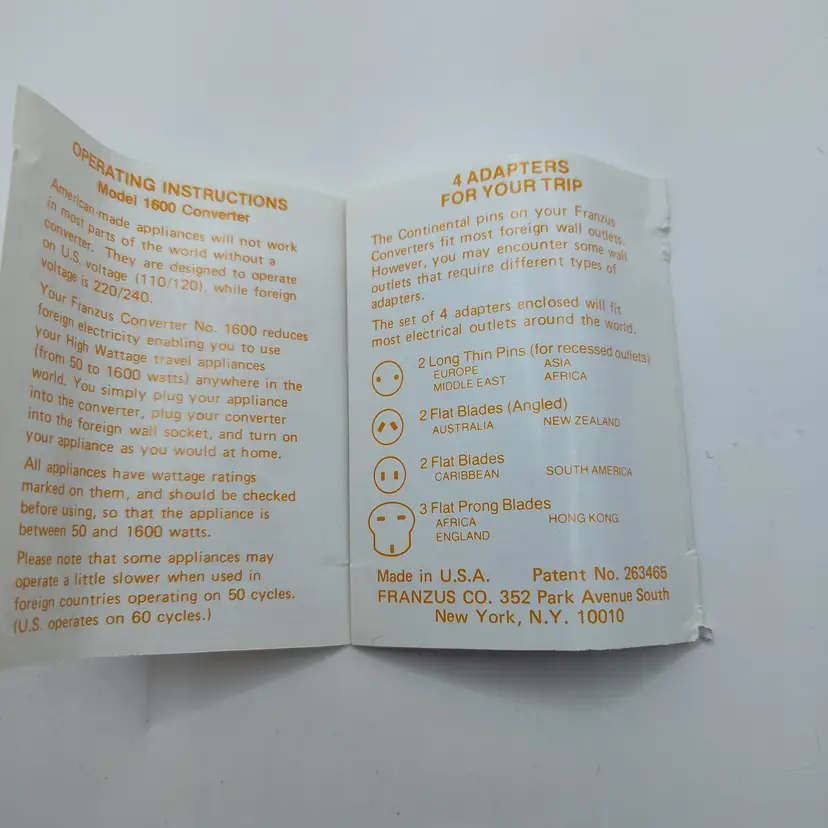 OPERATING INSTRUCTIONS
Model 1600 Converter
American-made appliances will not work
in most parts of the world without a
converter. They are designed to operate
on U.S. voltage (110/120), while foreign
voltage is 220/240.
Your Franzus Converter No. 1600 reduces
foreign electricity enabling you to use
your High Wattage travel appliances
(from 50 to 1600 watts) anywhere in the
world. You simply plug your appliance
into the converter, plug your converter
into the foreign wall socket, and turn on
your appliance as you would at home.
All appliances have wattage ratings
marked on them, and should be checked
before using, so that the appliance is
between 50 and 1600 watts.
Please note that some appliances may
operate a little slower when used in
foreign countries operating on 50 cycles.
(U.S. operates on 60 cycles.)
4 ADAPTERS
FOR YOUR TRIP
The Continental pins on your Franzus
Converters fit most foreign wall outlets.
However, you may encounter some wall
outlets that require different types of
adapters.
The set of 4 adapters enclosed will fit
most electrical outlets around the world.
2 Long Thin Pins (for recessed outlets)
EUROPE ASIA
MIDDLE EAST AFRICA
2 Flat Blades (Angled)
AUSTRALIA NEW ZEALAND
2 Flat Blades
CARIBBEAN SOUTH AMERICA
3 Flat Prong Blades
AFRICA HONG KONG
ENGLAND
Made in U.S.A. Patent No. 263465
FRANZUS CO. 352 Park Avenue South
New York, N.Y. 10010